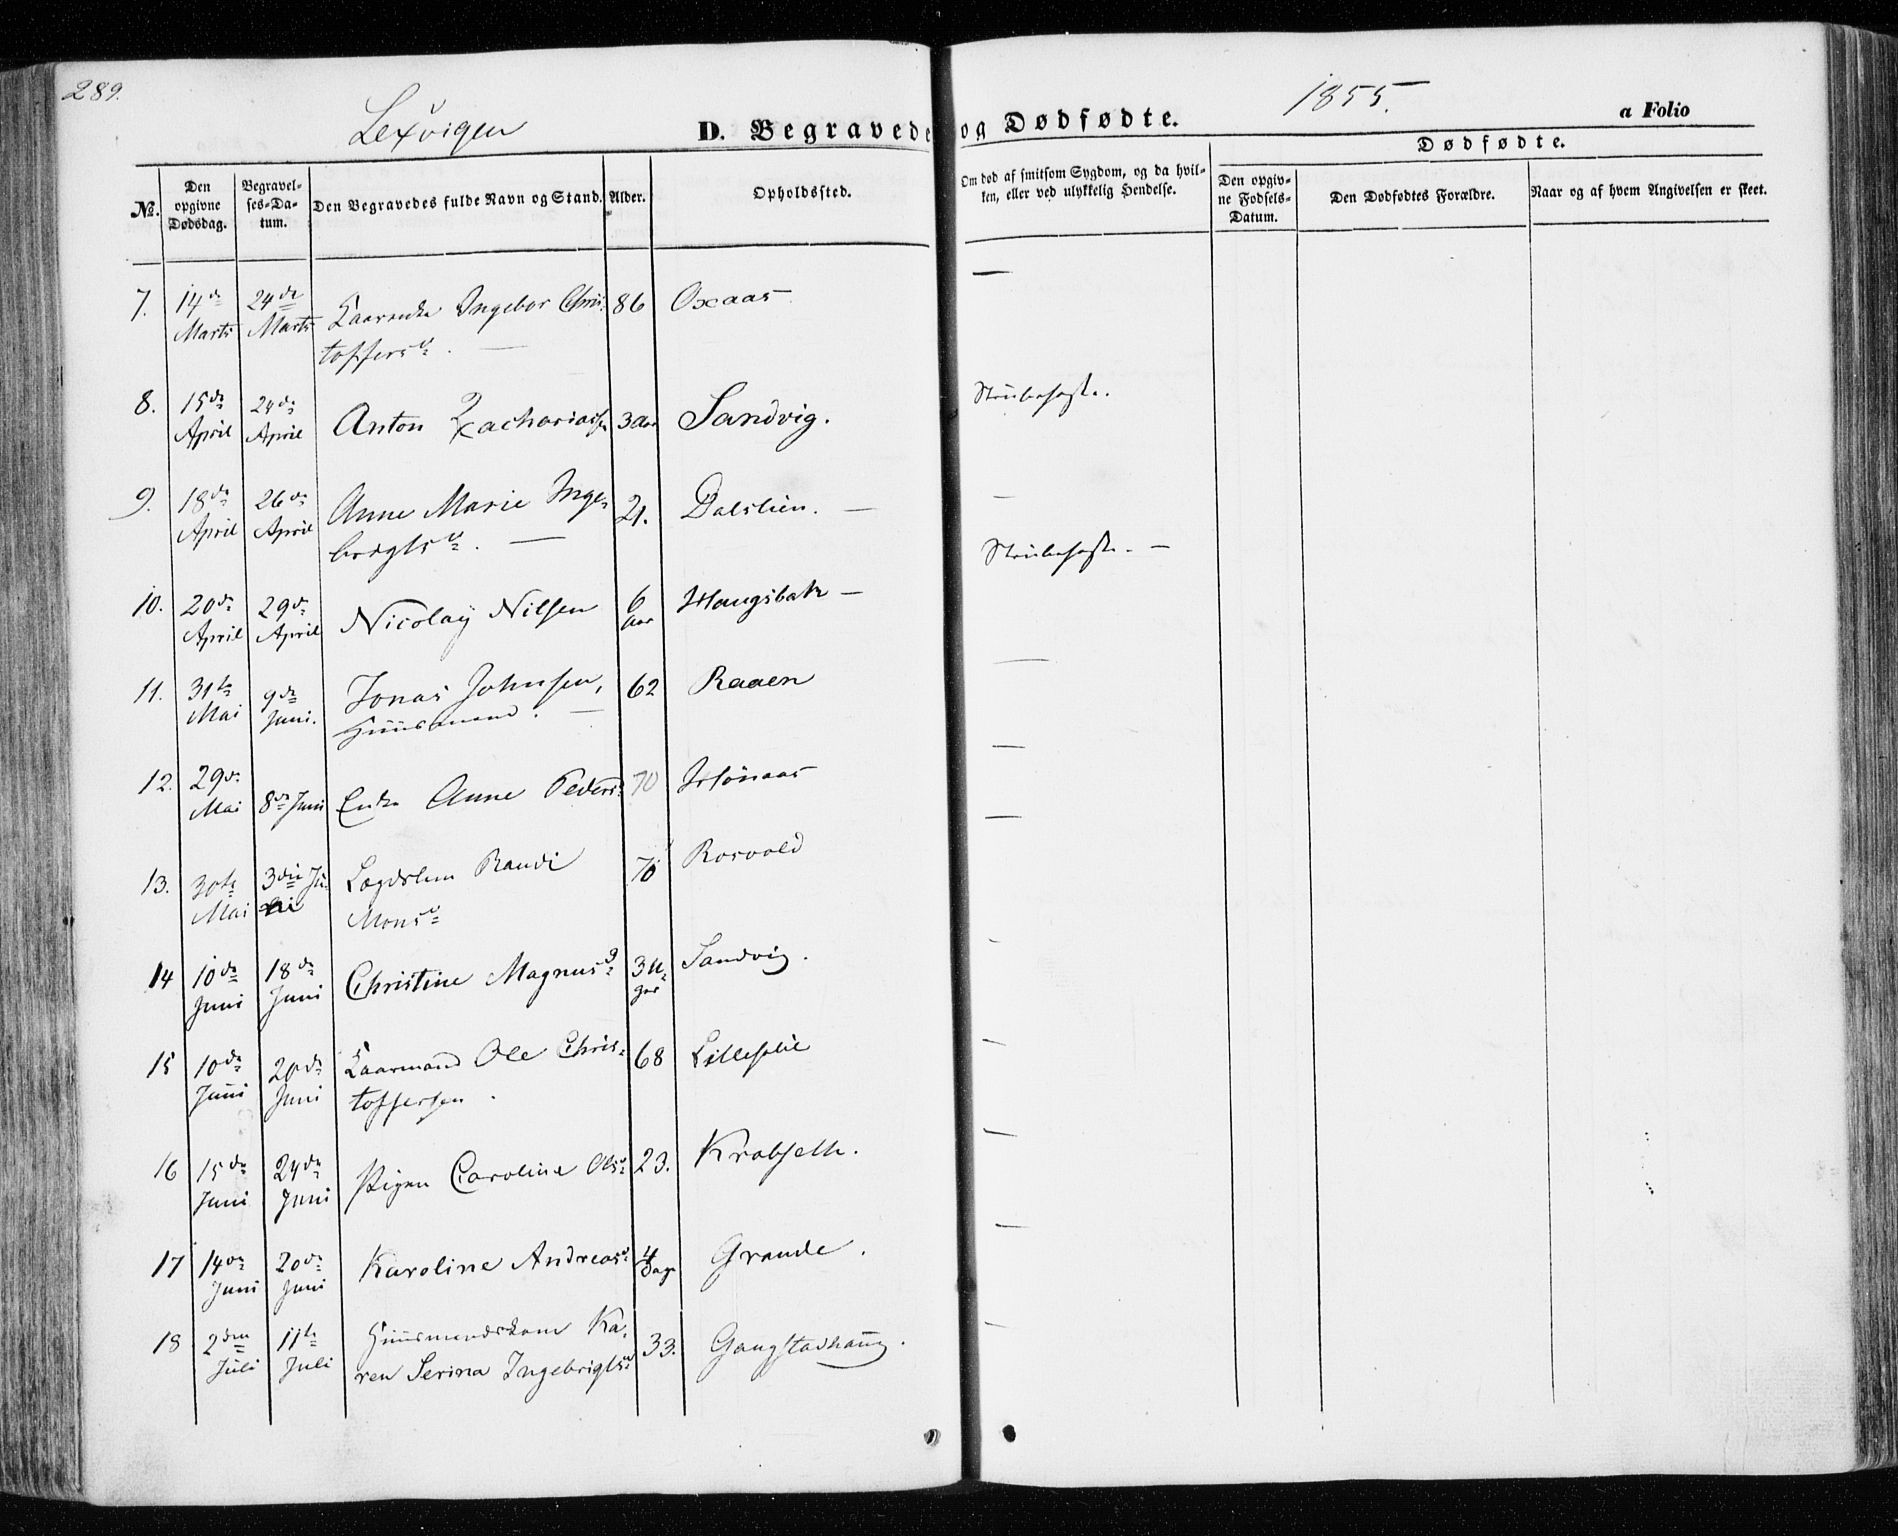 289.
Lexvigen
D. Begravede og Dødfødte.
1855.
a Folio
No.
Den opgivne Dødsdag.
Begravelses-Datum.
Den Begravedes fulde Navn og Stand.
Alder.
Opholdssted.
Om død af smitsom Sygdom, og da hvilken, eller ved ulykkelig Hendelse.
Dødfødte.
Den opgivne Fødsels-Datum.
Den Dødfødtes Forældre.
Naar og af hvem Angivelsen er skeet.
7. 14de Marts 24de Marts Kaarenke Ingebor Chris- 86 Oxaas —
toffersd. —
8. 15de April 24de April Anton Zachariassen 3 Aar Sandvig. Strubehoste.
9. 18de April 26de April Anne Marie Inge- 21. Dalslien. — —
brigtsd. —
10. 20de April 29de April Nicolaÿ Nilsen 6 Aar Haugsbak — Strubehoste. —
11. 31te Mai 9de Juni. Jonas Johnsen, 62 Raaen —
Huusmand. —
12. 29de Mai 8de Juni Enke Anne Peders 70 —
13. 30te Mai 3die Ju- Lægdslem Randi 70 Rosvold —
Monsd.
14 10de Juni 18de Juni Christine Magnusd. 3 U- Sandvig. -
ger
15 10de Juni 20de Juni Kaarmand Ole Chris- 68 Lillehlie —
toffersen.
16 15de Juni 24de Juni Pigen Caroline Olsd. 23. Krabseth. —
17 14de Juni 20de Juni Karoline Andreasd. 4 Dage Grande. —
18 2den Juli 11te Juli Huusmandskone Ka- 33. Gangstadhaug.
ren Serina Ingebrigtsd.